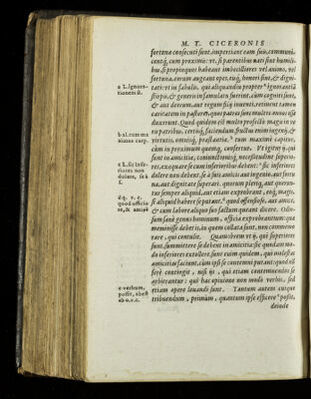 M. T. CICERONIS
fortunæ consecuti sunt, impertiant eam suis, communi
centq́; cum proximis: vt, si parentibus nati sint humili-
bus, si propinquos habeant imbecilliores vel animo, vel
fortuna, eorum augeant opes, eisq́; honori sint, & digni-
tati: vt in fabulis, qui aliquandiu propter ignorantiā
stirpis, & generis in famulatu fuerint, cùm cogniti sunt,
& aut deorum, aut regum filij inuenti, retinent tamen
caritatem in pastores, quos patres suos multos annos esse
duxerunt. Quod quidem est multo profectò magis in ve-
ris patribus, certisq́; faciendum. fructus enim ingenij, &
virtutis, omnisq́; præstantiæ, tum maximus capitur,
cùm in proximum quenq; confertur. Vt igitur ij, qui
sunt in amicitiæ, coniunctionisq́; necessitudine superio-
res, exæquare se cum inferioribus debent: sic inferiores
dolere non debent, se à suis aut ingenio, aut fortu
na, aut dignitate superari. quorum pleriq; aut querun-
tur semper aliquid, aut etiam exprobrant, eoq́; magis,
si aliquid habere se putant, quod officiosè, & amicè,
& cum labore aliquo suo factum queant dicere. Odio-
sum sanè genus hominum, officia exprobrantium: quæ
meminisse debet is, in quem collata sunt, non commemo
rare, qui contulit. Quamobrem vt ij, qui superiores
sunt, summittere se debent in amicitia: sic quodam mo-
do inferiores extollere. sunt enim quidam, qui molestas
amicitias faciunt, cùm ipsi se contemni putant: quod nō
ferè contingit, nisi ijs, qui etiam contemnendos se
arbitrantur: qui hac opinione non modò verbis, sed
etiam opere leuandi sunt. Tantum autem cuique
tribuendum, primùm, quantum ipse efficere possis,
deinde
a l. ignora-
tionem st.
b al. tum ma
ximus carp.
c l. sic infe-
riores non
dolere, se à
s.
e verbum,
possit, abest
ab o. v. c.